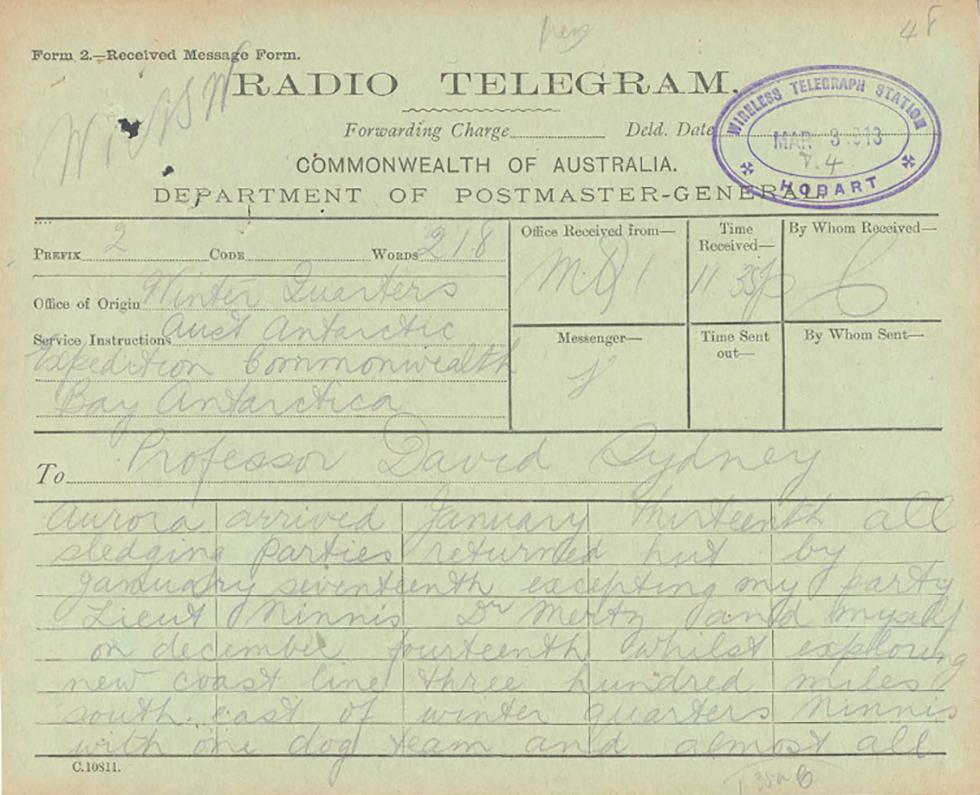 48
Form 2.—Received Message Form.
RADIO TELEGRAM.
Forwarding Charge Deld. Date
WIRELESS TELEGRAPH STATION
MAR 3 1913
HOBART
COMMONWEALTH OF AUSTRALIA.
DEPARTMENT OF POSTMASTER-GENERAL.
PREFIX 2 CODE WORDS 218
Office of Origin Winter Quarters
Service Instructions Aust Antarctic
Expedition Commonwealth
Bay Antarctica
Office Received from—
Time Received—
11 35p
By Whom Received—
Messenger—
Time Sent out—
By Whom Sent—
To Professor David Sydney
Aurora arrived January thirteenth all
sledging parties returned hut by
January seventeenth excepting my party
Lieut Ninnis Dr Mertz and myself
on december fourteenth whilst exploring
new coast line three hundred miles
south east of winter quarters Ninnis
with one dog team and almost all
C.10811.